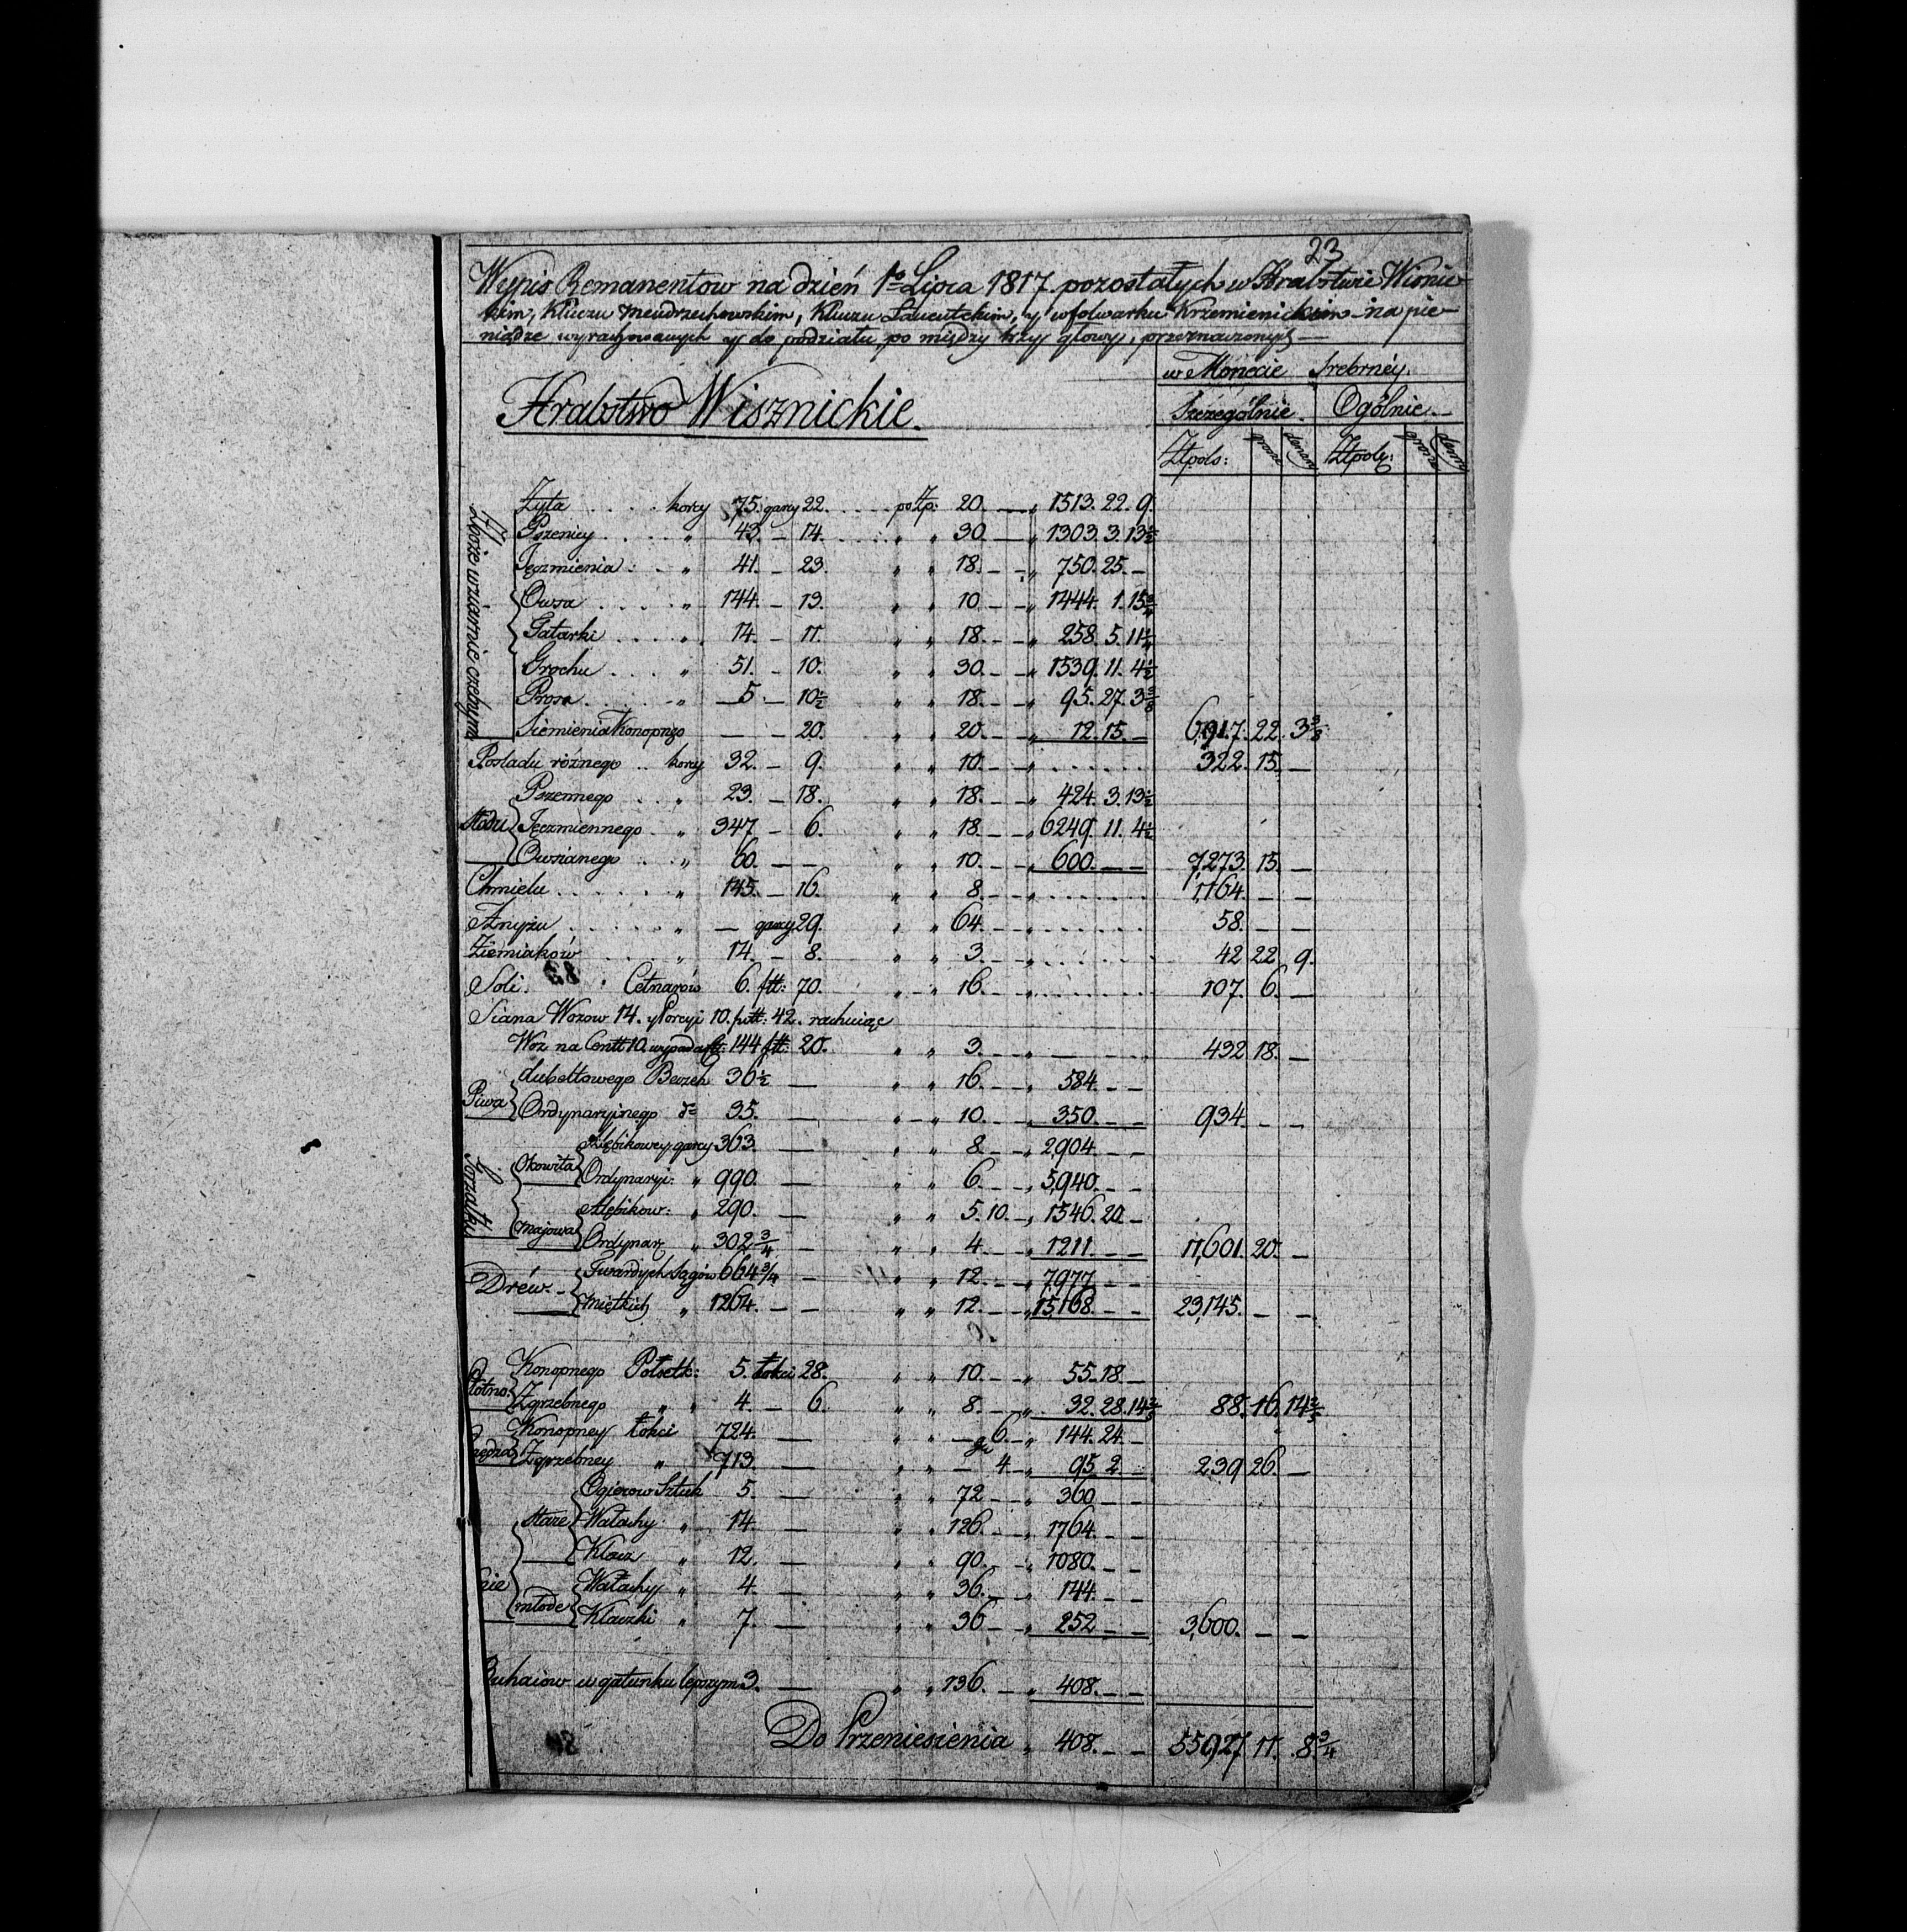 23
Wypis Remanentow na dzień 1º Lipca 1817 pozostałych w Hrabstwie Wisnic
kim, Kluczu Mendrzechowskim, Kluczu Łancutckim, y wfolwarku Krzemienickim na pie-
niądze wyrachowanych y do podziału po między trzy głowy, przeznaczonych
w Monecie Srebrnéy.
Hrabstwo Wisznickie.
Szczególnie. Ogólnie.
Złpols: grosze denary Złpols: grosze denary
Zboże w ziarnie czelnym
Żyta . . . . korcy 75. garcy 22. . . . po Zp: 20. — „ 1513. 22. 9.
Pszenicy . . . „ 43. — 14. . . . „ „ 30. — „ 1303. 3. 13½
Jęczmienia . . „ 41. — 23. „ „ 18. — „ 750. 25. —
Owsa . . . . „ 144. — 13. „ „ 10. — „ 1444. 1. 15¾
Tatarki . . . . „ 14. — 11. „ „ 18. — „ 258. 5. 11¼
Grochu . . . „ 51. — 10. „ „ 30. — „ 1539. 11. 4½
Prosa . . . . „ 5. — 10½ „ „ 18. — „ 95. 27. 3⅜
Siemienia Konopngo — — 20. „ „ 20. — „ 12. 15. — 6,917. 22. 3⅜
Pośladu różnego . . korcy 32. — 9. „ „ 10. — „ . . . . . . 322. 15. —
Słodu
Pszennego . . „ 23. — 18. „ „ 18. — „ 424. 3. 13½
Jęczmiennego . „ 347 — 6. „ „ 18. — „ 6249. 11. 4½
Owsianego . . „ 60. — — „ „ 10. — „ 600. — — 7,273. 15. —
Chmielu . . . . . „ 145. — 16. „ „ 8. — „ . . . . . . 1,164. — —
Anyżu . . . . . „ — garcy 29. „ „ 64. — „ . . . . . . 58. — —
Ziemiaków . . . . „ 14. — 8. „ „ 3. — „ . . . . . . 42 22 9.
Soli . Cetnarów 6. ftt: 70. „ „ 16. „ . . . . . . 107. 6. —
Siana Wozow 14. y Porcyi 10. pött: 42. rachuiąc
Woz na Centt 10. wypada Ctt: 144 ftt: 20. „ „ 3. — „ — 432 18. —
Piwa
dubeltowego Beczek 36½ — „ „ 16. — „ 584. — —
Ordynaryinego dº 35. — „ „ 10. — „ 350. — — 934. — —
Gorzałki
Okowita
Alębikowey garcy 363. — „ „ 8. — „ 2,904. — —
Ordynaryi: „ 990. — „ „ 6. — „ 5,940. — —
Majowa
Alębikow: „ 290. — „ „ 5. 10. — „ 1546. 20. —
Ordynar „ 302¾ — „ „ 4. — „ 1211. — — 11,601. 20. —
Drew
Twardych Sągów 664¾ — „ „ 12. — „ 7977 — —
Miętkich „ 1264. — — „ „ 12. — „ 15,168. — — 23,145. — —
Płótno:
Konopnego Półsetk: 5. Łokci 28. „ „ 10. — „ 55. 18. —
Zgrzebnego „ „ 4. — 6. „ „ 8. — „ 32. 28. 14⅖ 88. 16. 14⅖
Przędza
Konopney Łokci 724. — „ „ — gr 6. — „ 144. 24. —
Zgrzebney „ 713. — „ „ — 4. — „ 95. 2. — 239 26. —
nie
stare
Ogierow Sztuk 5. — „ „ 72 — „ 360 — —
Wałachy „ 14. — „ „ 126. — „ 1764. — —
Klacz „ 12. — „ „ 90. — „ 1080. — —
młode
Wałachy „ 4. — „ „ 36. — „ 144. — —
Klaczki „ 7. — „ „ 36 — „ 252 — — 3,600. — —
Buhaiow w gatunku lepszym 3. — „ „ 136. — „ 408. — —
Do Przeniesienia „ 408. — — 55927. 11. 8¾